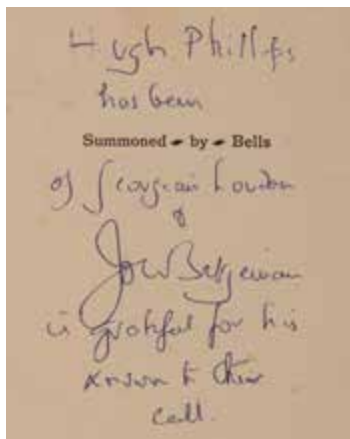 Hugh Phillips
has been
Summoned by Bells
of Georgian London
&
John Betjeman
is grateful for his
to their
call.